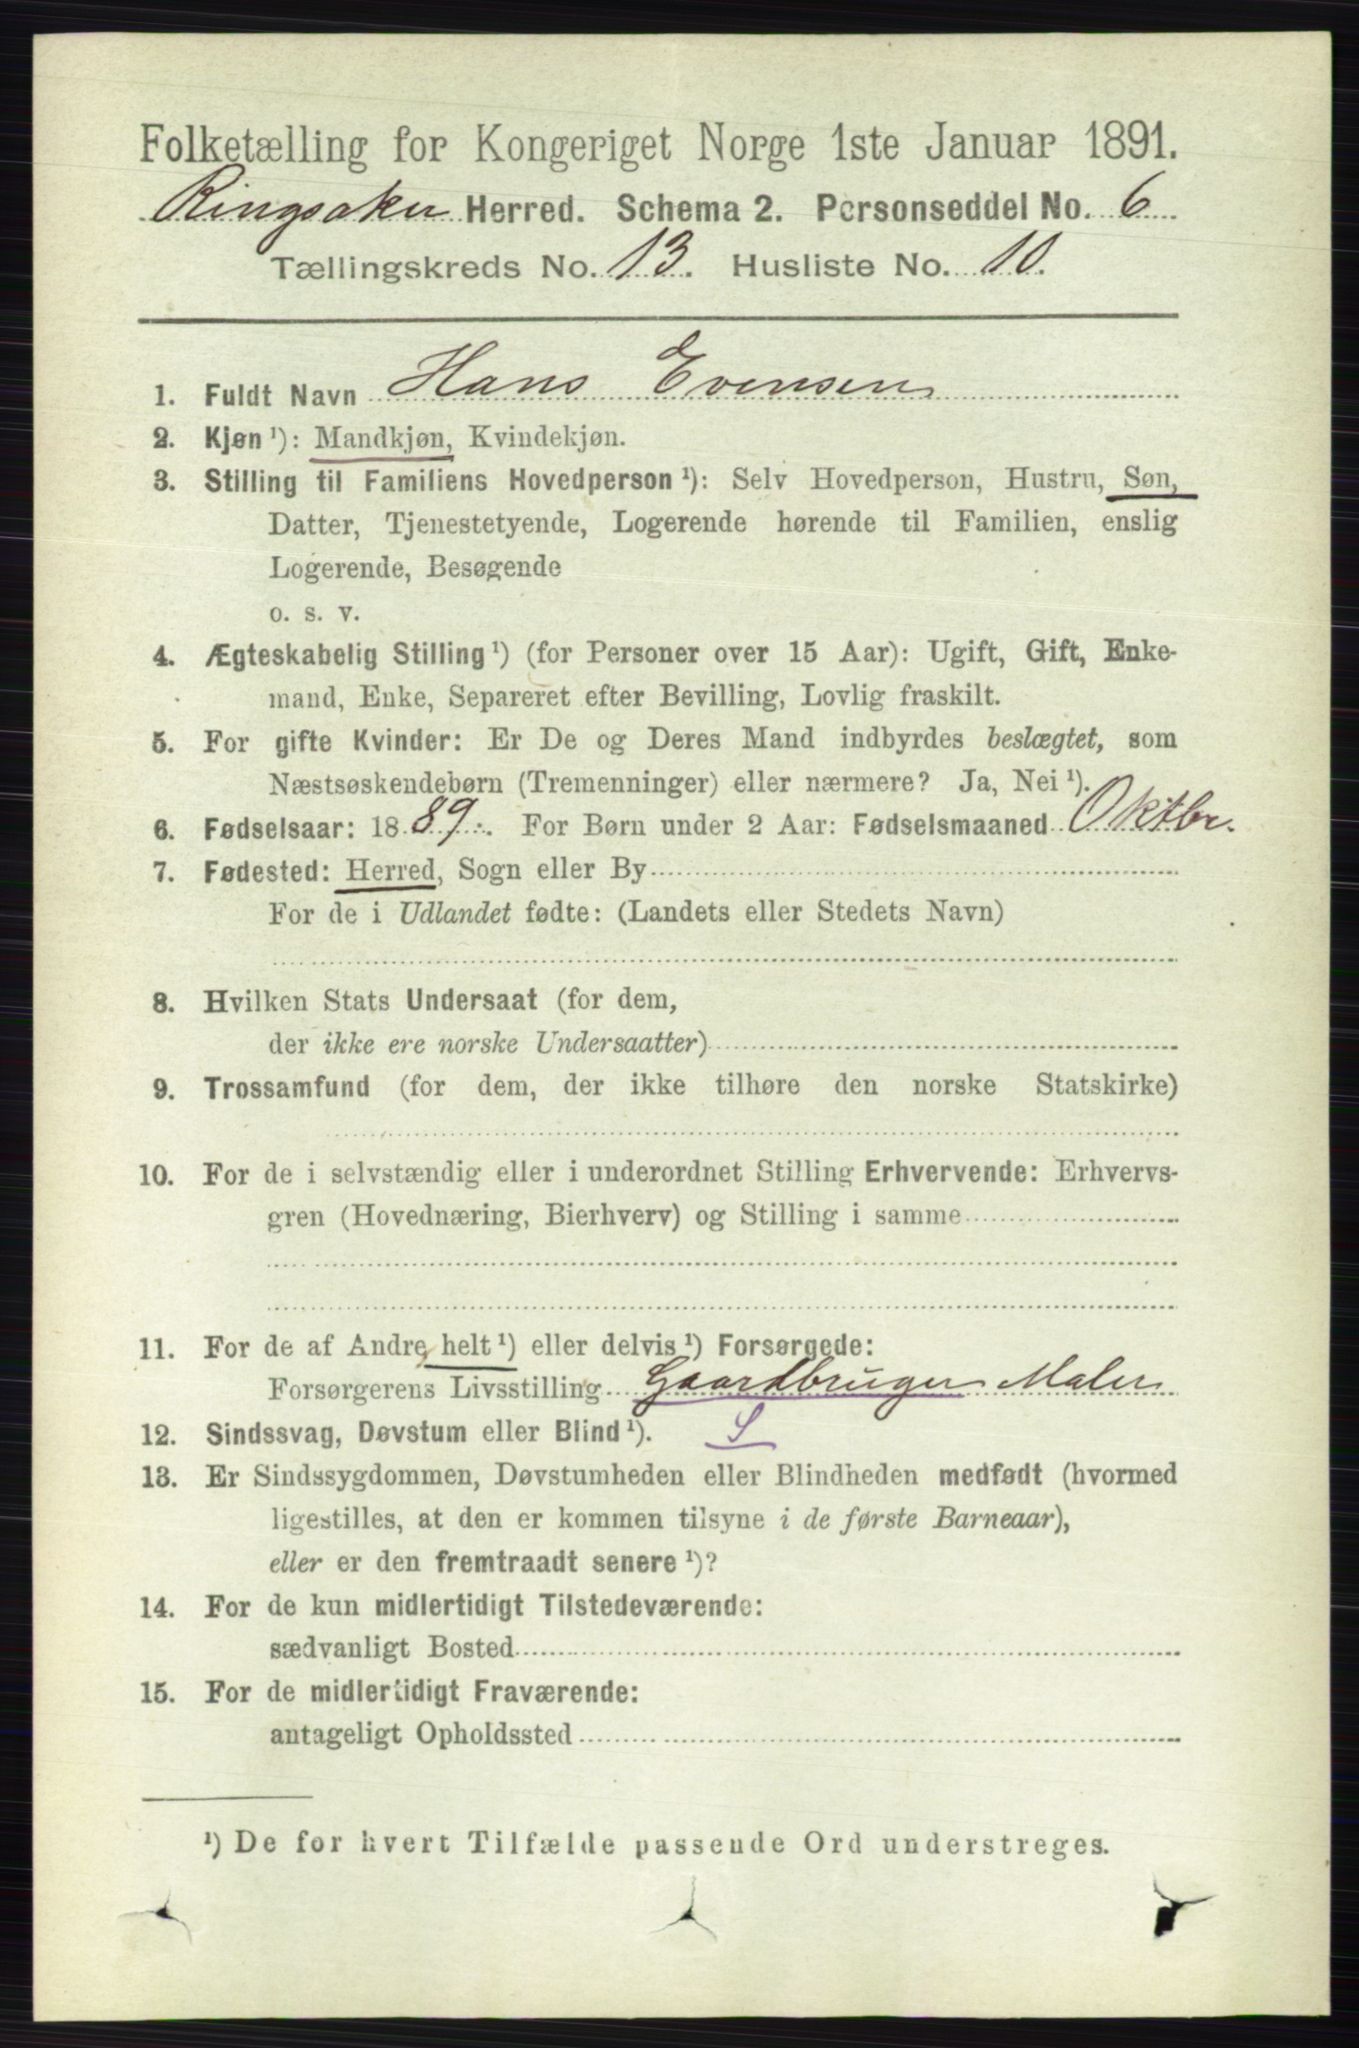 Folketælling for Kongeriget Norge 1ste Januar 1891.
Ringsaker Herred. Schema 2. Personseddel No. 6
Tællingskreds No. 13. Husliste No. 10.
1. Fuldt Navn Hans Evensen
2. Kjøn ¹): Mandkjøn, Kvindekjøn.
3. Stilling til Familiens Hovedperson ¹): Selv Hovedperson, Hustru, Søn,
Datter, Tjenestetyende, Logerende hørende til Familien, enslig
Logerende, Besøgende
o. s. v.
4. Ægteskabelig Stilling ¹) (for Personer over 15 Aar): Ugift, Gift, Enke-
mand, Enke, Separeret efter Bevilling, Lovlig fraskilt.
5. For gifte Kvinder: Er De og Deres Mand indbyrdes beslægtet, som
Næstsøskendebørn (Tremenninger) eller nærmere? Ja, Nei ¹).
6. Fødselsaar: 1889. For Børn under 2 Aar: Fødselsmaaned Oktbr.
7. Fødested: Herred, Sogn eller By
For de i Udlandet fødte: (Landets eller Stedets Navn)
8. Hvilken Stats Undersaat (for dem,
der ikke ere norske Undersaatter)
9. Trossamfund (for dem, der ikke tilhøre den norske Statskirke)
10. For de i selvstændig eller i underordnet Stilling Erhvervende: Erhvervs-
gren (Hovednæring, Bierhverv) og Stilling i samme
11. For de af Andre helt ¹) eller delvis ¹) Forsørgede:
Forsørgerens Livsstilling Gaardbruger Maler
12. Sindssvag, Døvstum eller Blind ¹). S
13. Er Sindssygdommen, Døvstumheden eller Blindheden medfødt (hvormed
ligestilles, at den er kommen tilsyne i de første Barneaar),
eller er den fremtraadt senere ¹)?
14. For de kun midlertidigt Tilstedeværende:
sædvanligt Bosted
15. For de midlertidigt Fraværende:
antageligt Opholdssted
¹) De for hvert Tilfælde passende Ord understreges.